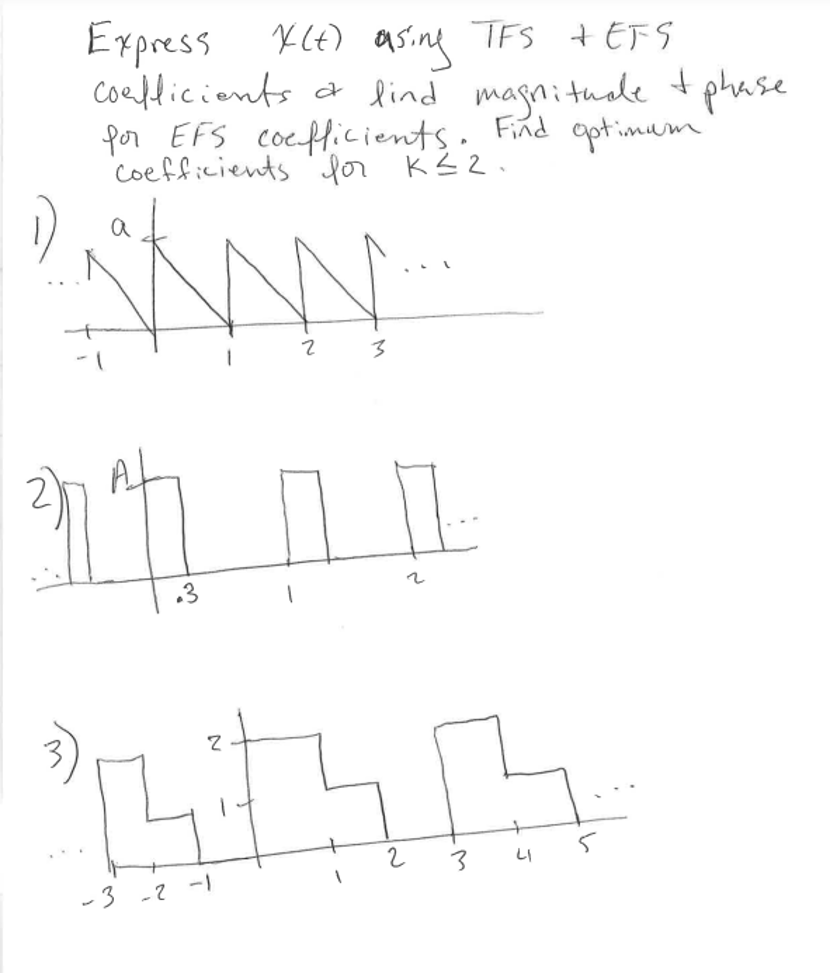 Express x(t) using TFS + EFS
coefficients & find magnitude + phase
for EFS coefficients. Find optimum
coefficients for K ≤ 2.
1)
a
...
...
-1 1 2 3
2)
A
...
...
.3 1 2
3)
2
1
...
...
-3 -2 -1 1 2 3 4 5